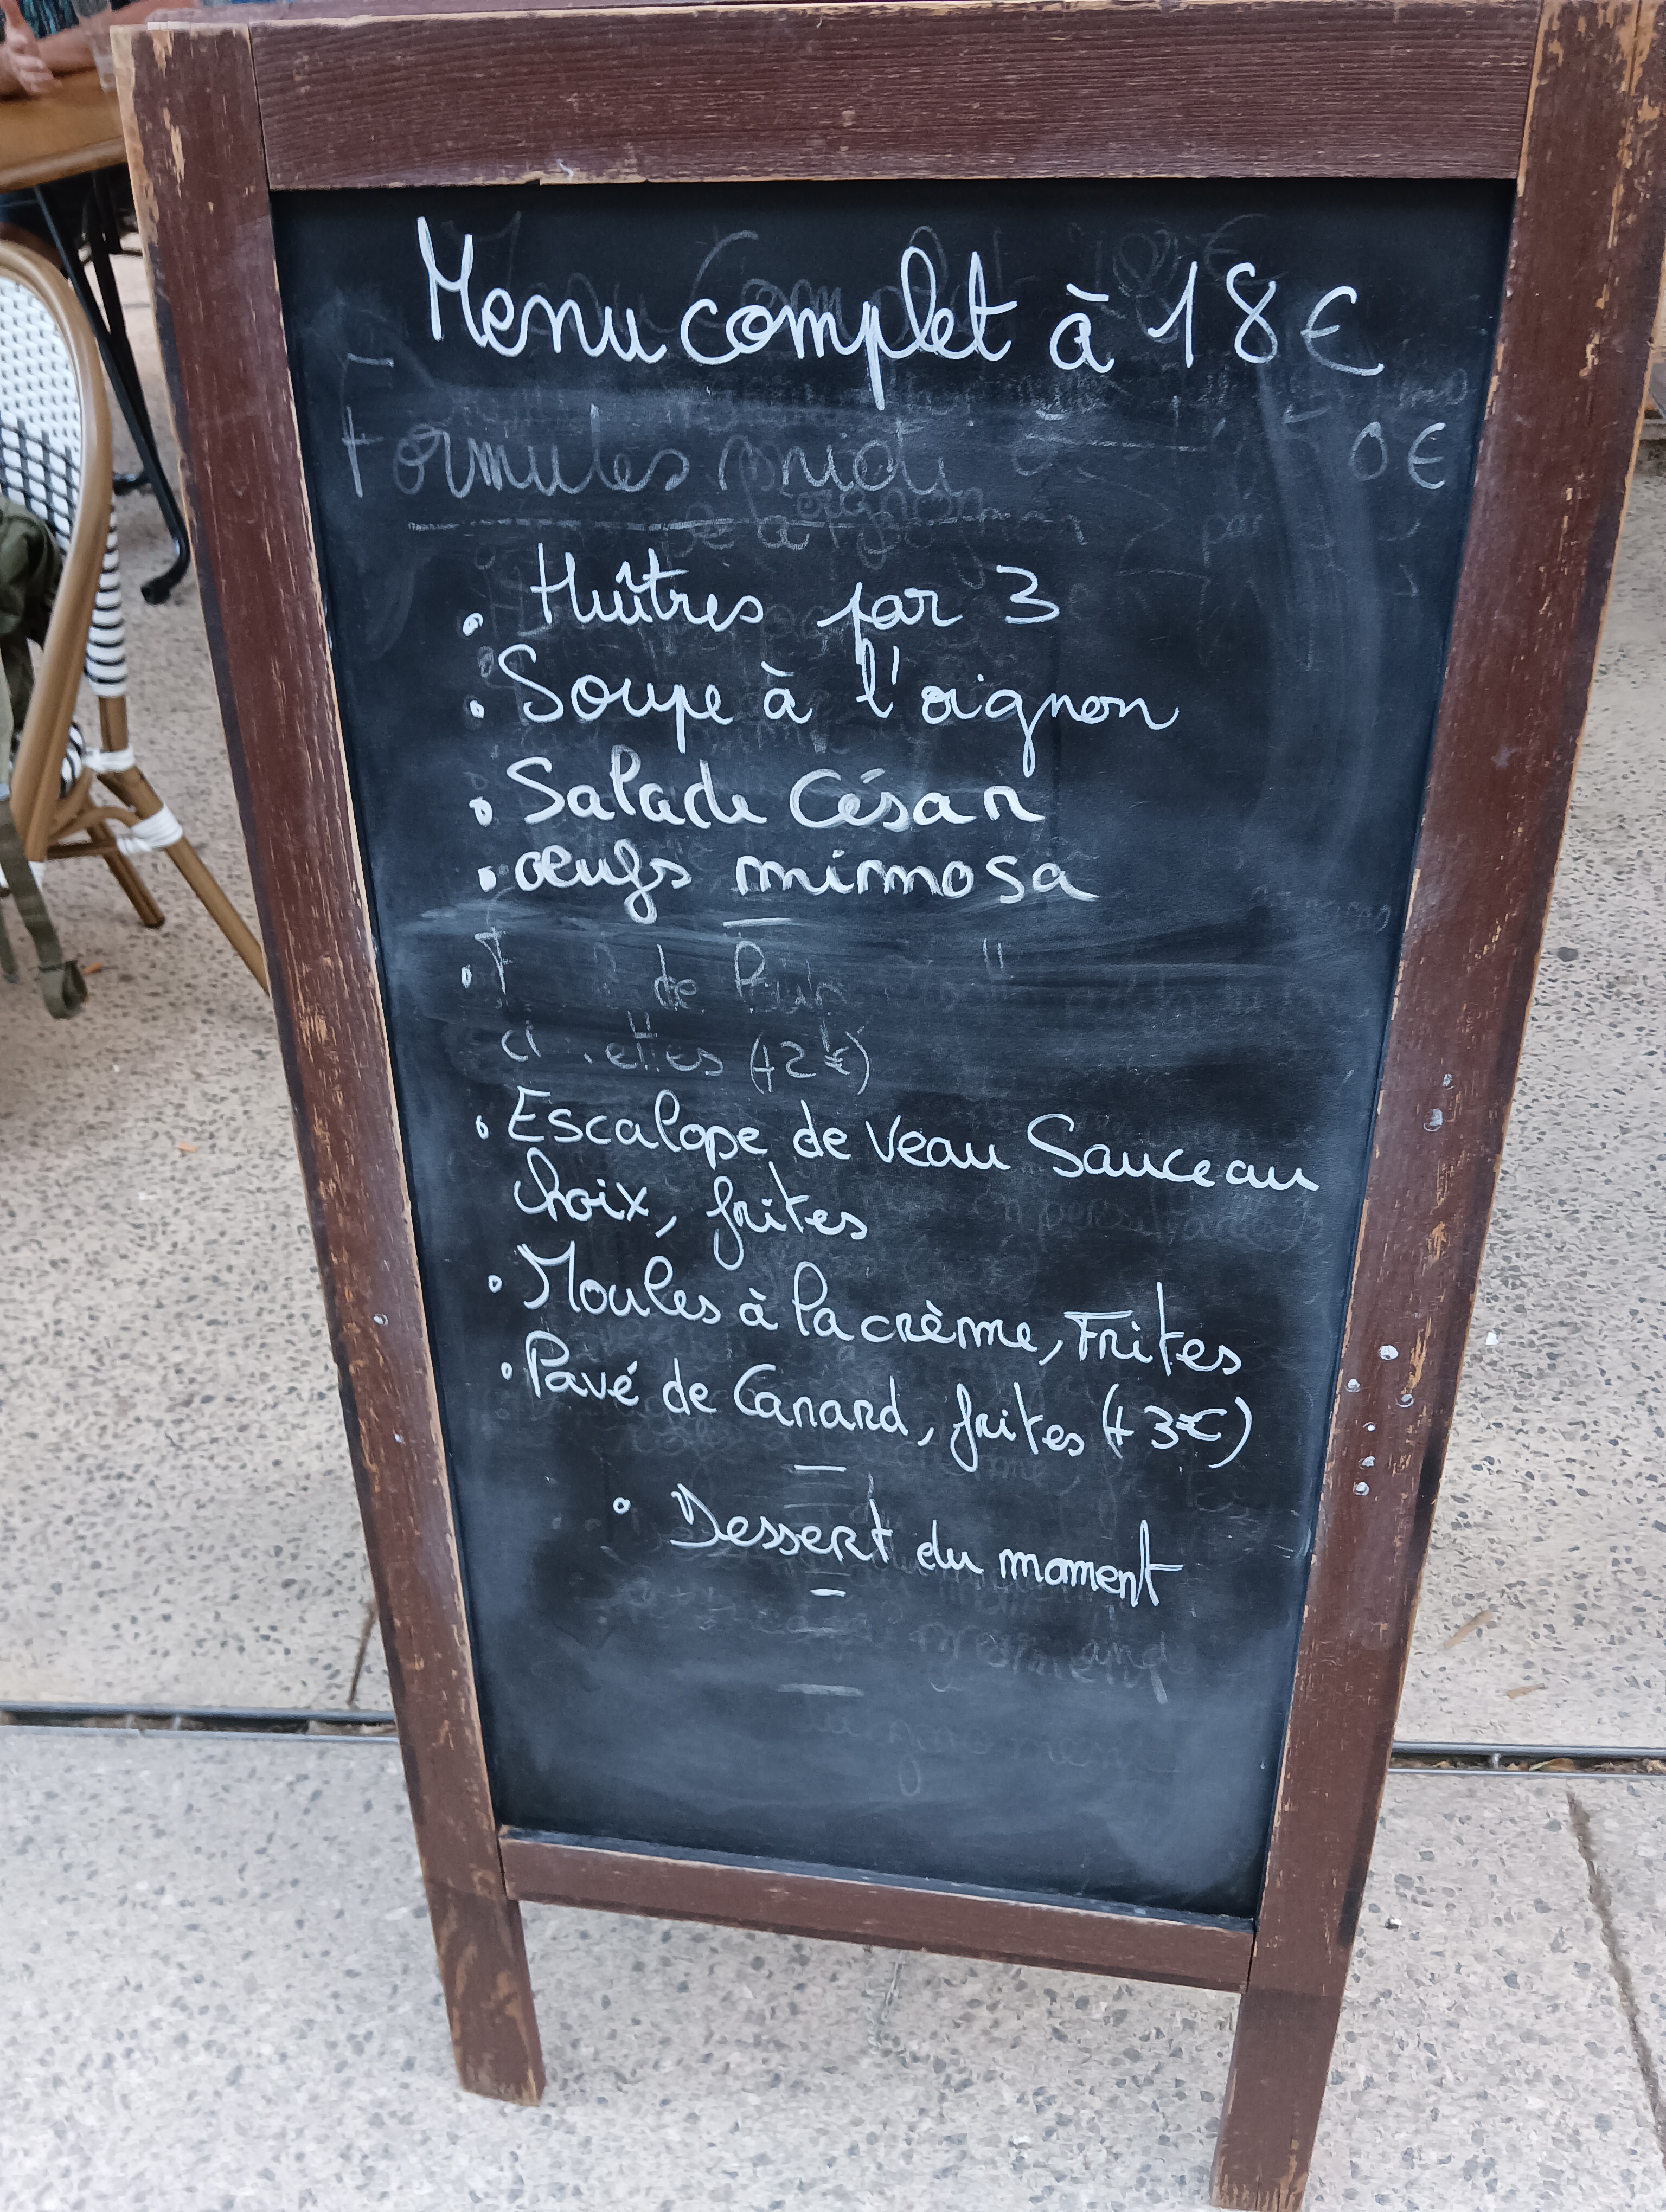 Menu complet à 18€
Formules midi 0€
• Huîtres par 3
• Soupe à l'oignon
• Salade César
• œufs mimosa
• de
(+2€)
• Escalope de veau Sauce au
choix, frites
• Moules à la crème, Frites
• Pavé de Canard, frites (+3€)
• Dessert du moment